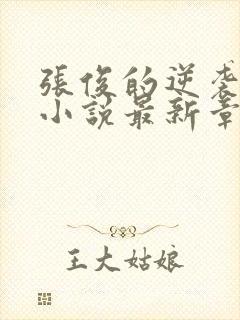 張俊的逆袭
小説最新章
王大姑娘